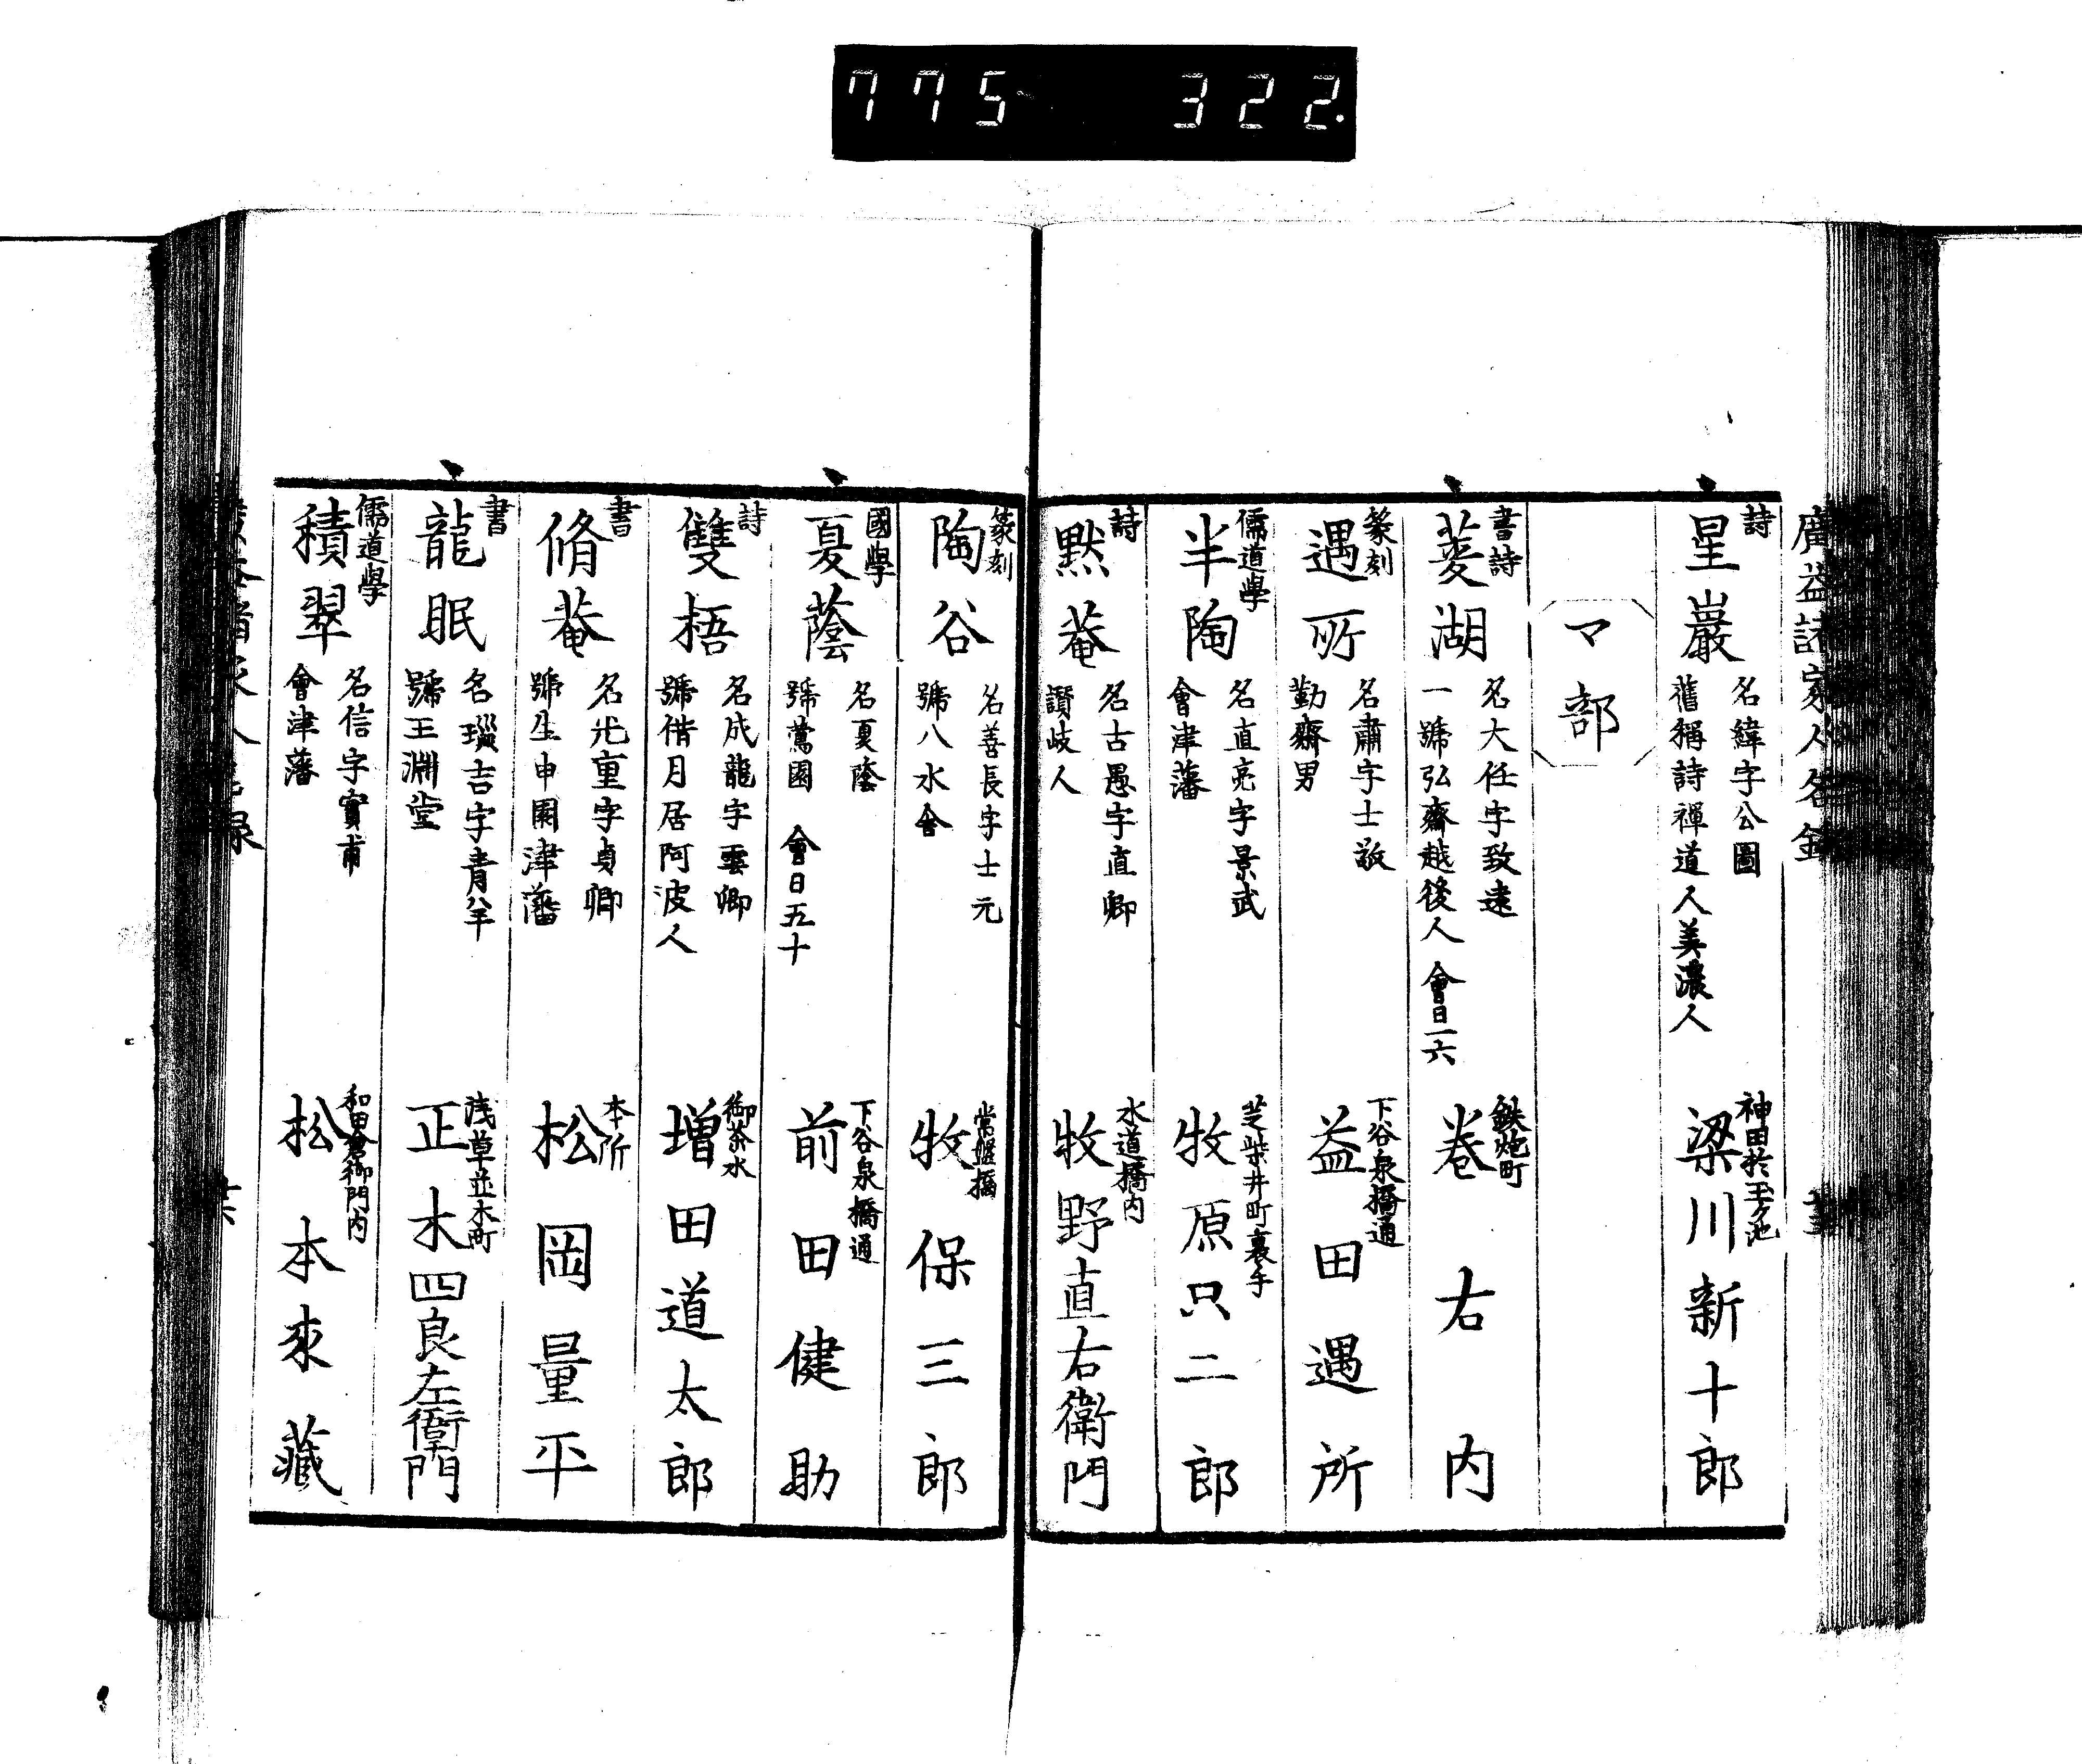 775 322
廣益諸家人名錄
詩
星巖
名緯字公圖
舊稱詩禪道人美濃人
神田於玉ケ池
梁川新十郎
マ部
書詩
菱湖
名大任字致遠
一號弘齋越後人 會日一六
鉄炮町
卷右内
篆刻
遇所
名肅字士敬
勤齋男
下谷泉橋通
益田遇所
儒道學
半陶
名直亮字景武
會津藩
芝柴井町裏手
牧原只二郎
詩
默菴
名古愚字直卿
讃岐人
水道橋内
牧野直右衛門
篆刻
陶谷
名善長字士元
號八水舎
常盤橋
牧保三郎
國學
夏蔭
名夏蔭
號鶯園 會日五十
下谷泉橋通
前田健助
詩
雙梧
名成龍字雲卿
號偕月居阿波人
御茶水
増田道太郎
書
脩菴
名光重字貞卿
號生申園津藩
本所
松岡量平
書
龍眠
名瑙吉字青羊
號玉淵堂
浅草並木町
正木四良左衛門
儒道學
積翠
名信字實甫
會津藩
和田倉御門内
松本來藏